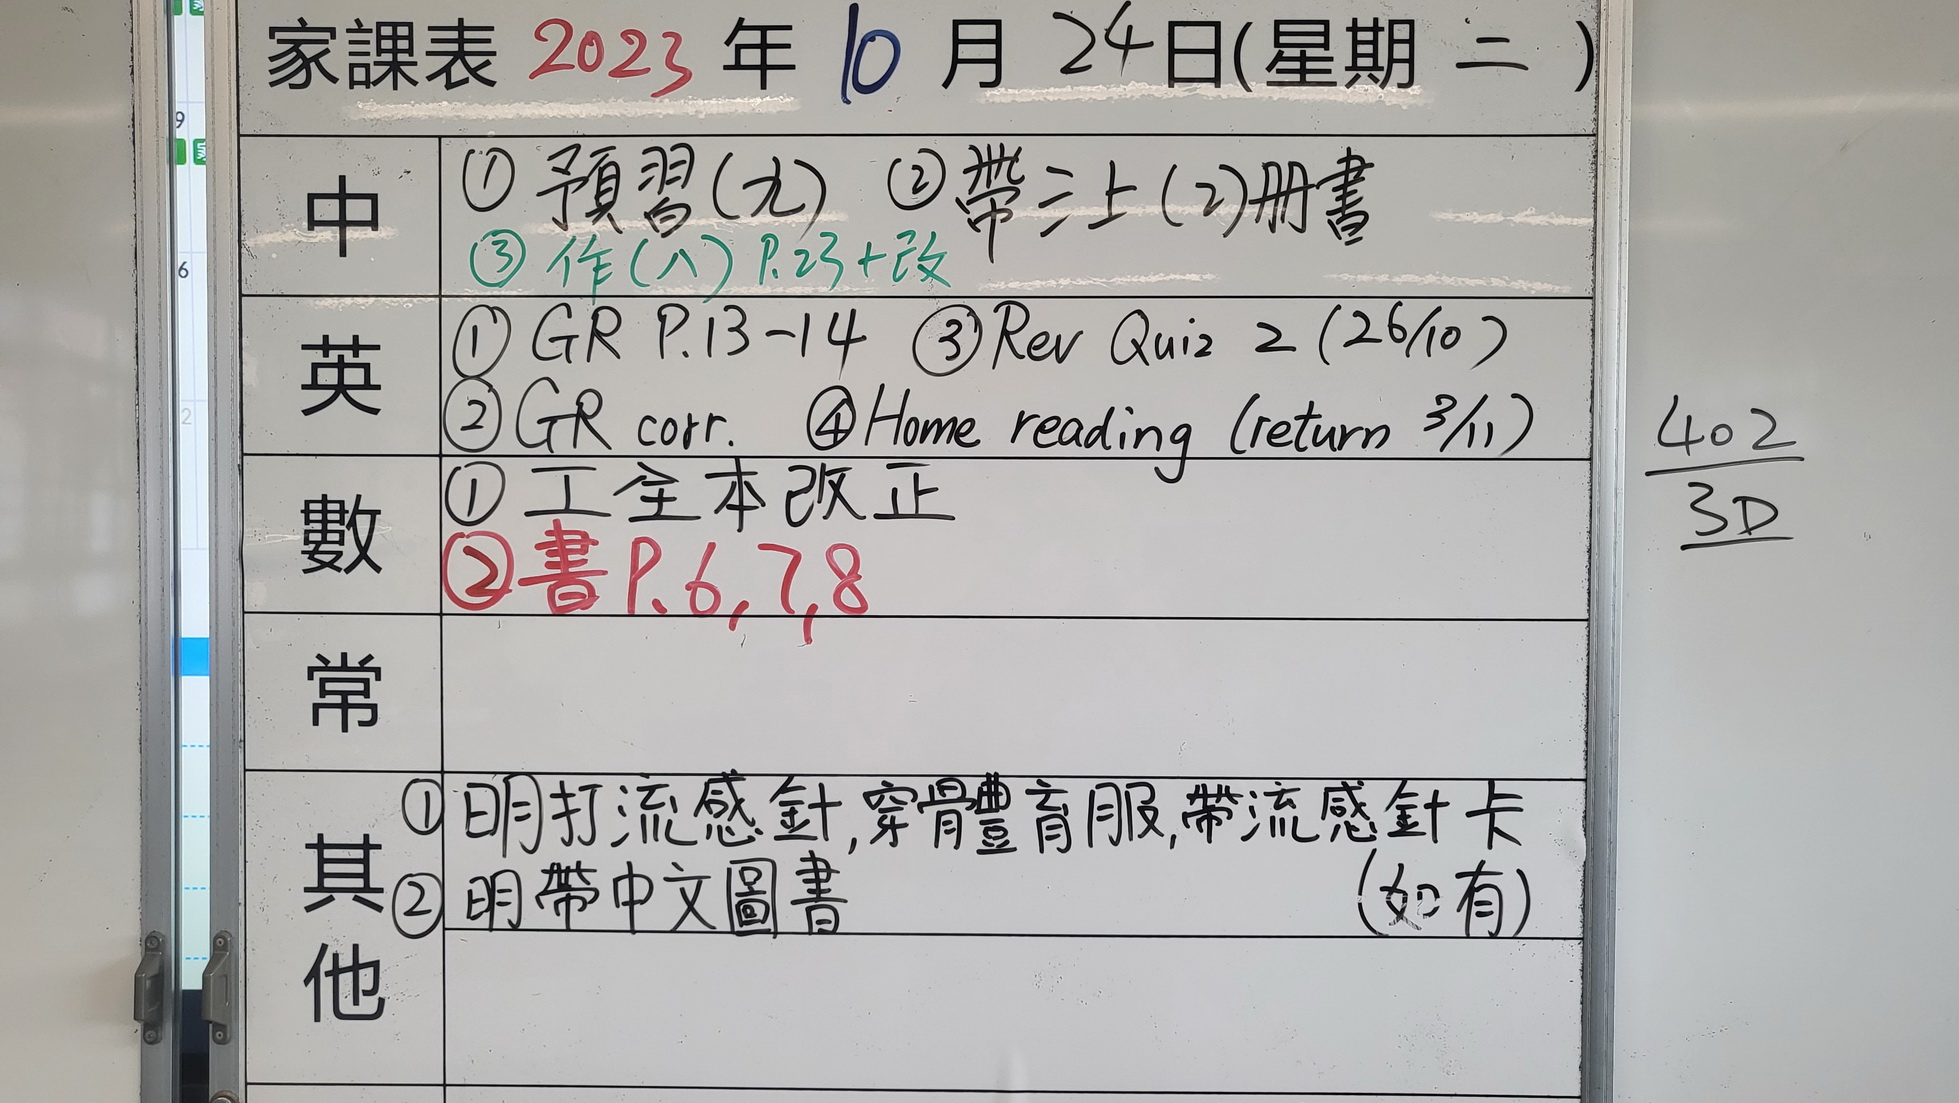 家課表 2023 年 10 月 24日(星期 二 )
中
① 預習(九) ② 帶三上(2)册書
③ 作(八) P.23+改
英
① GR P.13-14 ③ Rev Quiz 2 (26/10)
② GR corr. ④ Home reading (return 3/11)
數
① 工全本改正
② 書P.6,7,8
常
其他
① 明打流感針,穿體育服,帶流感針卡
(如有)
② 明帶中文圖書
402
3D
9
6
2